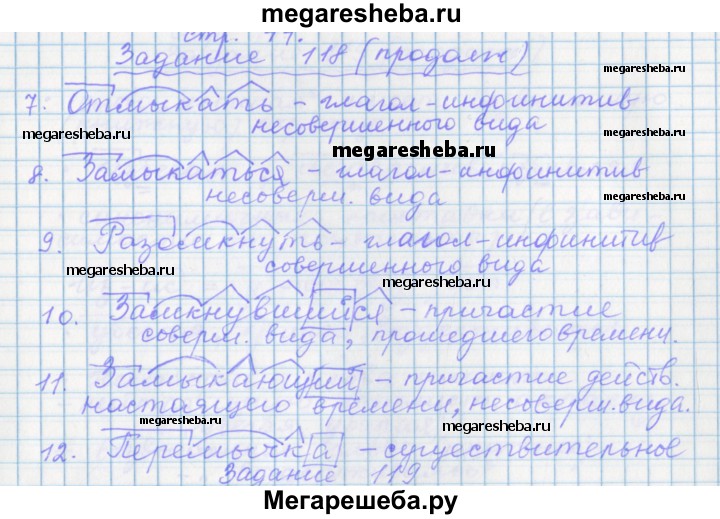 megaresheba.ru
стр. 44.
Задание 118 (продолж)
megaresheba.ru
7. Отмыкать – глагол-инфинитив
несовершенного вида
megaresheba.ru
megaresheba.ru
8. Замыкаться – глагол-инфинитив
несоверш. вида
megaresheba.ru
9. Разомкнуть – глагол-инфинитив
совершенного вида
megaresheba.ru
megaresheba.ru
10. Замкнувшийся – причастие
соверш. вида, прошедшего времени.
11. Замыкающий – причастие действ.
настоящего времени, несоверш. вида.
megaresheba.ru
megaresheba.ru
12. Перемычка – существительное
Задание 119
Мегарешеба.ру